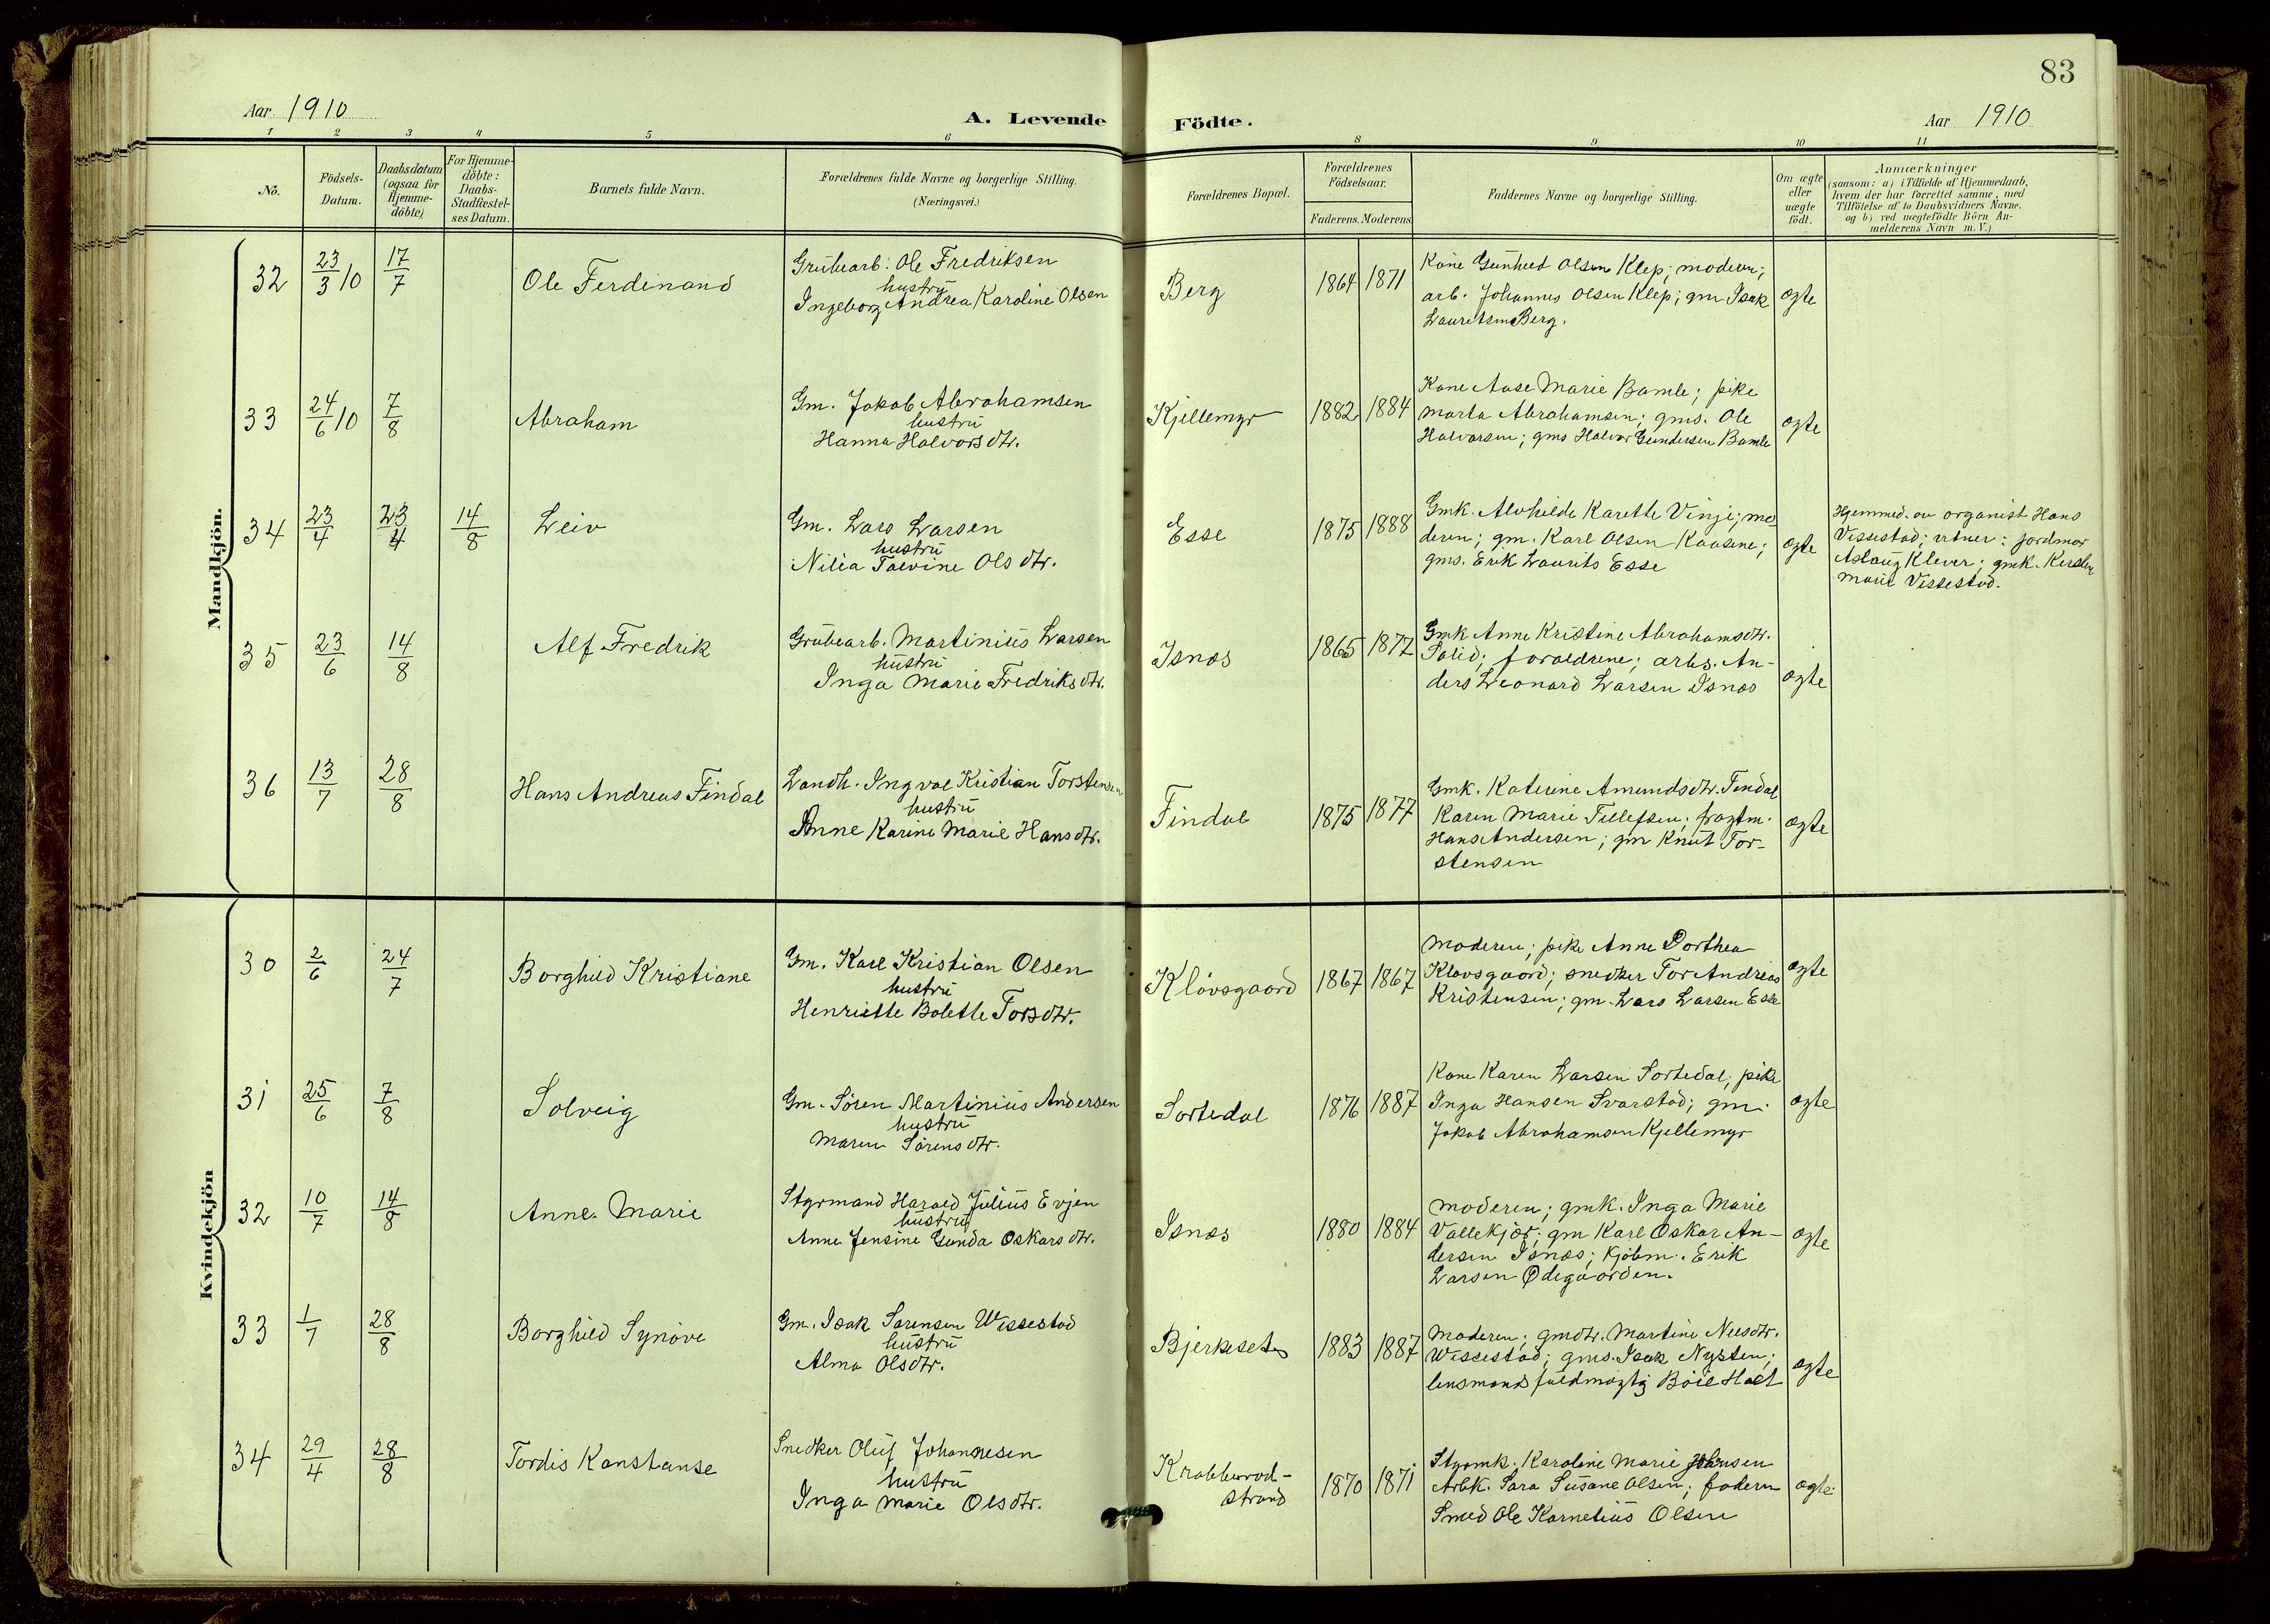 83
Aar 1910
A. Levende Födte.
Aar 1910
1 2 3 4 5 6 8 9 10 11
No.
Födsels-
Datum.
Daabsdatum
(ogsaa for
Hjemme-
döbte)
For Hjemme-
döbte:
Daabs-
Stadfæstel-
ses Datum.
Barnets fulde Navn.
Forældrenes fulde Navne og borgerlige Stilling.
(Næringsvei.)
Forældrenes Bopæl.
Forældrenes
Födselsaar.
Faderens. Moderens
Faddernes Navne og borgerlige Stilling.
Om ægte
eller
uægte
födt.
Anmærkninger
(saasom: a) i Tilfælde af Hjemmedaab,
hvem der har forrettet samme, med
Tilföielse af to Daabsvidners Navne.
og b) ved uægtefödte Börn An-
melderens Navn m.V.)
Mandkjön.
32
23/3 10
17/7
Ole Ferdinand
Grubearb. Ole Fredriksen
hustru
Ingeborg Andrea Karoline Olsen
Berg
1864 1871
Kone Gunhild Olsen Klep; moderen;
arb. Johannes Olsen Klep; gm Isak
Lauritsen Berg.
ægte
33
24/6 10
7/8
Abraham
Gm. Jakob Abrahamsen
hustru
Hanna Halvorsdtr.
Kjellemyr
1882 1884
Kone Aase Marie Bamle; pike
Marta Abrahamsen; gms. Ole
Halvorsen; gms Halvor Gundersen Bamle
ægte
34
23/4
23/4
14/8
Leiv
Gm. Lars Larsen
hustru
Nilia Talvine Olsdtr.
Esse
1875 1888
Gmk. Alvhilde Karette Vinje; mo-
deren; gm. Karl Olsen Kaasene;
gms. Erik Laurits Esse
ægte
Hjemmed. av organist Hans
Vissestad; vitner: jordmor
Aslaug Klever; gmk. Kirstine
Marie Vissestad.
35
23/6
14/8
Alf Fredrik
Grubearb. Martinius Larsen
hustru
Inga Marie Fredriksdtr.
Isnæs
1865 1877
Gmk Anne Kristine Abrahamsdtr.
Solid; forældrene; arbs. An-
ders Leonard Larsen Isnæs
ægte
36
13/7
28/8
Hans Andreas Findal
Landh. Ingval Kristian Torstensen
hustru
Anne Karine Marie Hansdtr.
Findal
1875 1877
Gmk. Katerine Amundsdtr. Findal
Karen Marie Tellefsen; fragtm.
Hans Andersen; gm Knut Tor-
stensen
ægte
Kvindekjön
30
2/6
24/7
Borghild Kristiane
Gm. Karl Kristian Olsen
hustru
Henriette Bolette Torsdtr.
Kløvsgaard
1867 1867
Moderen; pike Anne Dorthea
Kløvsgaard; snedker Tor Andreas
Kristensen; gm. Lars Larsen Esse
ægte
31
25/6
7/8
Solveig
Gm. Søren Martinius Andersen
hustru
Maren Sørensdtr.
Sortedal
1876 1887
Kone Karen Larsen Sortedal; pike
Inga Hansen Svarstad; gm.
Jakob Abrahamsen Kjellemyr
ægte
32
10/7
14/8
Anne Marie
Styrmand Harald Julius Evjen
hustru
Anne Jensine Gunda Oskarsdtr.
Isnæs
1880 1884
Moderen; gmk. Inga Marie
Vallekjær; gm Karl Oskar An-
dersen Isnæs; kjøbm. Erik
Larsen Ødegaarden.
ægte
33
1/7
28/8
Borghild Synøve
Gm. Isak Sørensen Wissestad
hustru
Alma Olsdtr.
Bjerkeset
1883 1887
Moderen; gmdtr. Martine Nilsdtr.
Wissestad; gms. Isak Nysten;
lensmandsfuldmægtig Boie Holt
ægte
34
29/4
28/8
Tordis Konstanse
Snedker Oluf Johannesen
hustru
Inga Marie Olsdtr.
Krabberød-
strand
1870 1871
Styrmk. Karoline Marie Johnsen
Arbk. Sara Susane Olsen; faderen
Smed Ole Kornelius Olsen
ægte